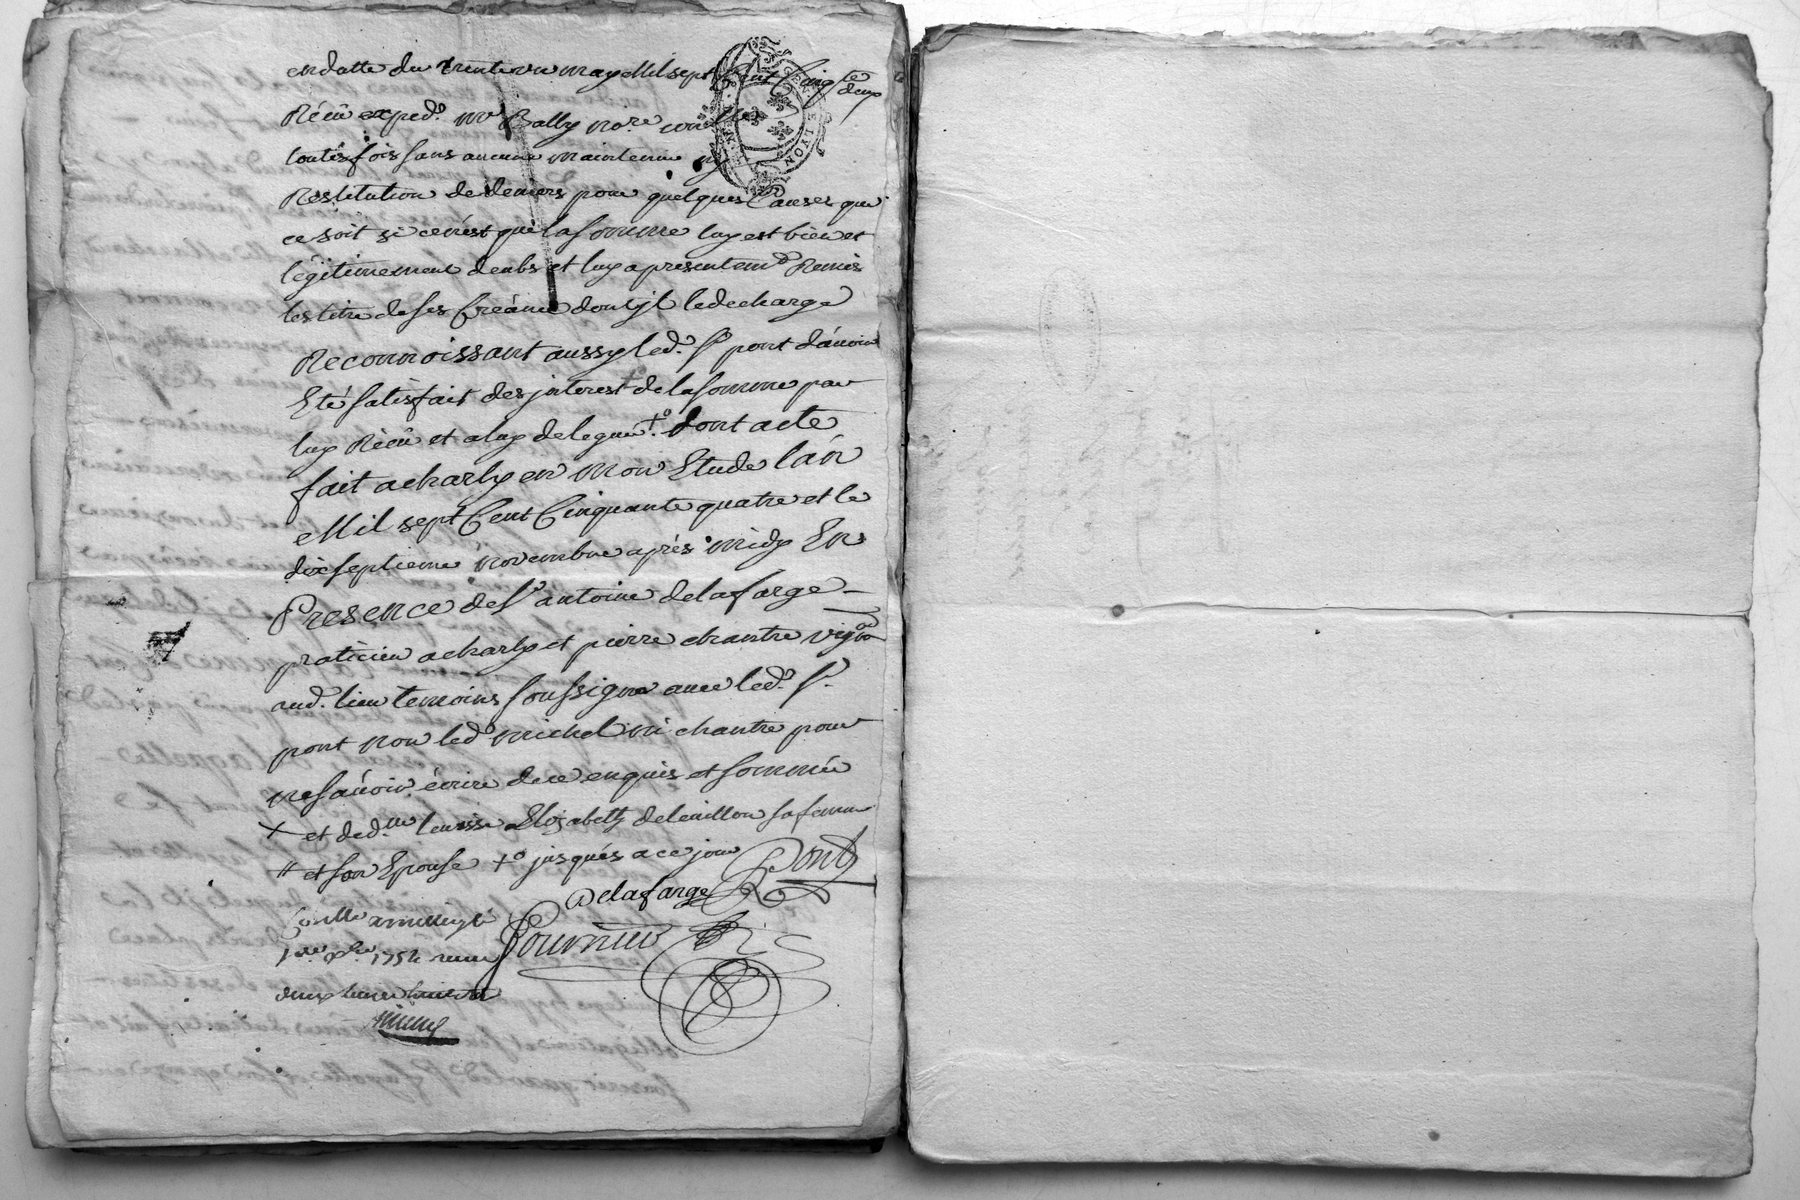 en datte du trente un may Mil sept Cent Cinq.te deux
Réçu exped.o m.e Bally no.re
toutesfois sans aucune maintenue ny
Restitution de deniers pour quelques Causes que
ce soit si ce n'est que la somme luy est bien et
légitimement deubs et luy a presentem.t Remis
les titre de ses Creánce dont jl le decharge
Reconnoissant aussy led.o s.r pont d'auoir
Eté satisfait des jnterest de la somme par
luy Réçû et a luy deleguée +o. dont acte
fait a charly en mon Etude l'án
Mil sept Cent Cinquante quatre et le
dixseptieme novembre après midy En
Presence de s.r antoine delafarge
praticien a charly et pierre chantre vign.on
aud. lieu temoins soussigne auec led.o s.r
pont non led.o michel ni chantre pour
ne sáuoir écrire de ce enquis et sommée
+ et de d.lle Elizabeth sa femme
# et son Epouse +o jusqués a ce jour
Pont
Delafarge
Con.llé a millery le
1.er x.bre 1754 reçu
deux
LYON